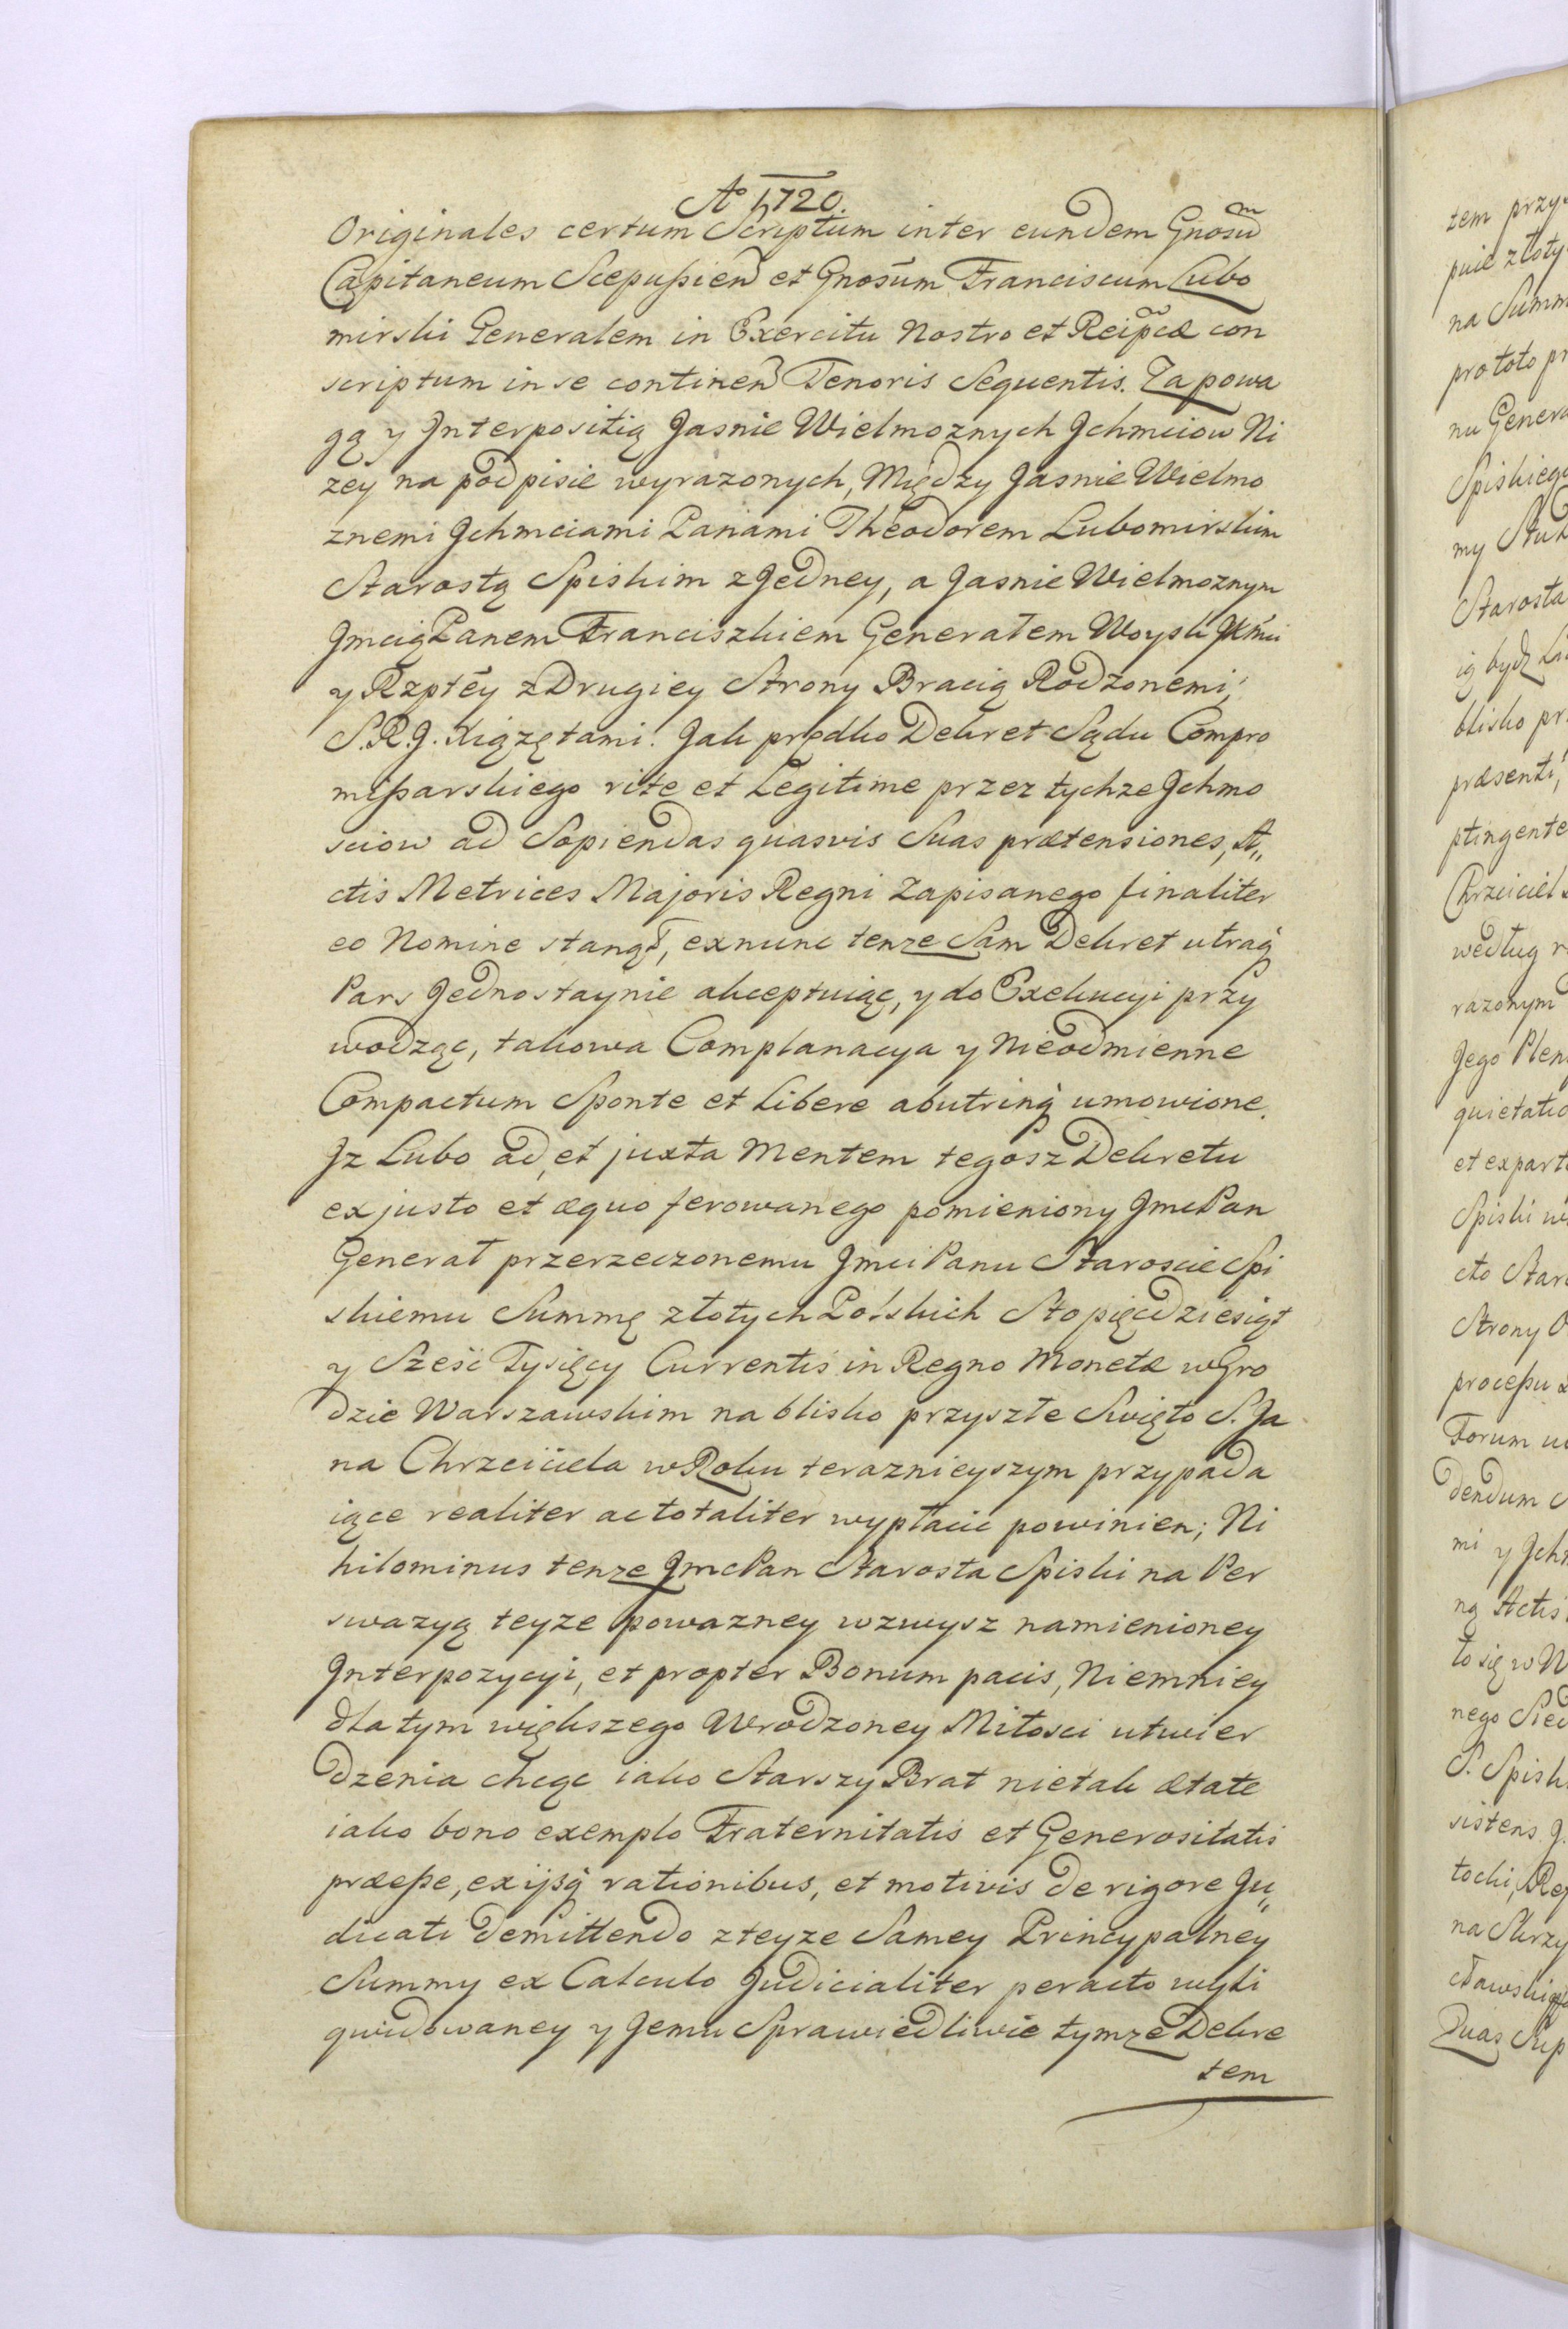 Aº 1720.
Originales certum Scriptum inter eundem Gnosũ
Capitaneum Scepuſsien et Gnosũm Franciscum Lubo
mirski Generalem in Exercitu Nostro et Reipcæ con
scriptum in se continen Tenoris Sequentis. Za powa
gą y Jnterpositią Jasnie Wielmoznych Jchmciow Ni
zey na podpisie wyrazonych, Między Jasnie Wielmo
znemi Jchmciami Panami Theodorem Lubomirskim
Starostą Spiskim z Jedney, a Jasnie Wielmoznym
Jmcią Panem Franciszkiem Generałem Woysk JKmci
y Rzptey z Drugiey Strony Bracią Rodzonemi,
S.R.J. Xiązętami. Jak prędko Dekret Sądu Compro
miſsarskiego rite et Legitime przez tychze Jchmo
sciow ad Sopiendas quasvis Suas prætensiones, A„
ctis Metrices Majoris Regni Zapisanego finaliter
eo Nomine stanął, exnunc tenze Sam Dekret utraq
Pars Jednostaynie akceptuiąc, y do Exekucyi przy
wodząc, takowa Complanacya y Nieodmienne
Compactum Sponte et Libere abutrinq umowione.
Jz Lubo ad, et juxta Mentem tegosz Dekretu
ex justo et æquo ferowanego pomieniony Jmc Pan
Generał przerzeczonemu Jmci Panu Staroscie Spi
skiemu Summę złotych Polskich Sto pięcdziesiąt
y Sześć Tysięcy Currentis in Regno Monetæ w Gro
dzie Warszawskim na blisko przyszłe Swięto S. Ja
na Chrzciciela w Roku teraznieyszym przypada
iące realiter ac totaliter wypłacic powinien; Ni
hilominus tenze Jmc Pan Starosta Spiski na Per
swazyą teyze powazney wzwysz namienioney
Jnterpozycyi, et propter Bonum pacis, Niemniey
dla tym większego Wrodzoney Miłosci utwier
dzenia chcąc iako Starszy Brat nietak ætate
iako bono exemplo Fraternitatis et Generositatis
præeſse, ex ijsq rationibus, et motivis de rigore Ju„
dicati demittendo z teyze Samey Pryncypalney
Summy ex Calculo Judicialiter peracto wyli
qwidowaney y Jemu Sprawiedliwie tymze Dekre
tem
tem przy
puie złoty
na Summ
pro toto pr
nu Genera
Spiskiego
Starosta
blisko pr
præsenti,
ptingente
według r
razonym
Jego Plen
quietatio
et expart
Spiski w
cto Star
Strony
proceſsu
Forum
dendum
mi y Jch
ną Actis
to się w
nego
S. Spisk
sistens
tocki, Re
na Skrzy
cławski